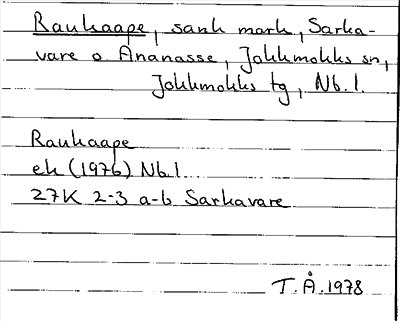 Raukaape, sank mark, Sarka-
vare o Ananasse, Jokkmokks sn,
Jokkmokks tg, Nb.l.
Raukaape
ek (1976) Nb l
27K 2-3 a-b Sarkavare
T.Å.1978